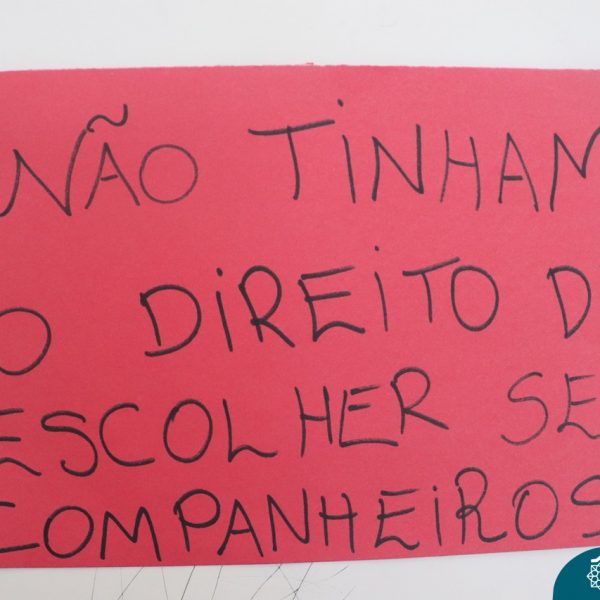 NÃO TINHAM
O DIREITO D
ESCOLHER SE
COMPANHEIROS